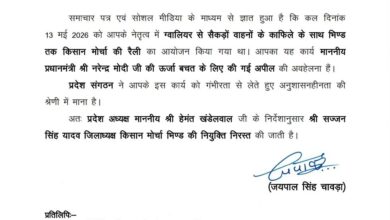 समाचार पत्र एवं सोशल मीडिया के माध्यम से ज्ञात हुआ है कि कल दिनांक
13 मई 2026 को आपके नेतृत्व में ग्वालियर से सैकड़ों वाहनों के काफिले के साथ भिण्ड
तक किसान मोर्चा की रैली का आयोजन किया गया था। आपका यह कार्य माननीय
प्रधानमंत्री श्री नरेन्द्र मोदी जी की ऊर्जा बचत के लिए की गई अपील की अवहेलना हैं।
प्रदेश संगठन ने आपके इस कार्य को गंभीरता से लेते हुए अनुशासनहीनता की
श्रेणी में माना है।
अतः प्रदेश अध्यक्ष माननीय श्री हेमंत खंडेलवाल जी के निर्देशानुसार श्री सज्जन
सिंह यादव जिलाध्यक्ष किसान मोर्चा भिण्ड की नियुक्ति निरस्त की जाती है।
(जयपाल सिंह चावड़ा)
प्रतिलिपिः–